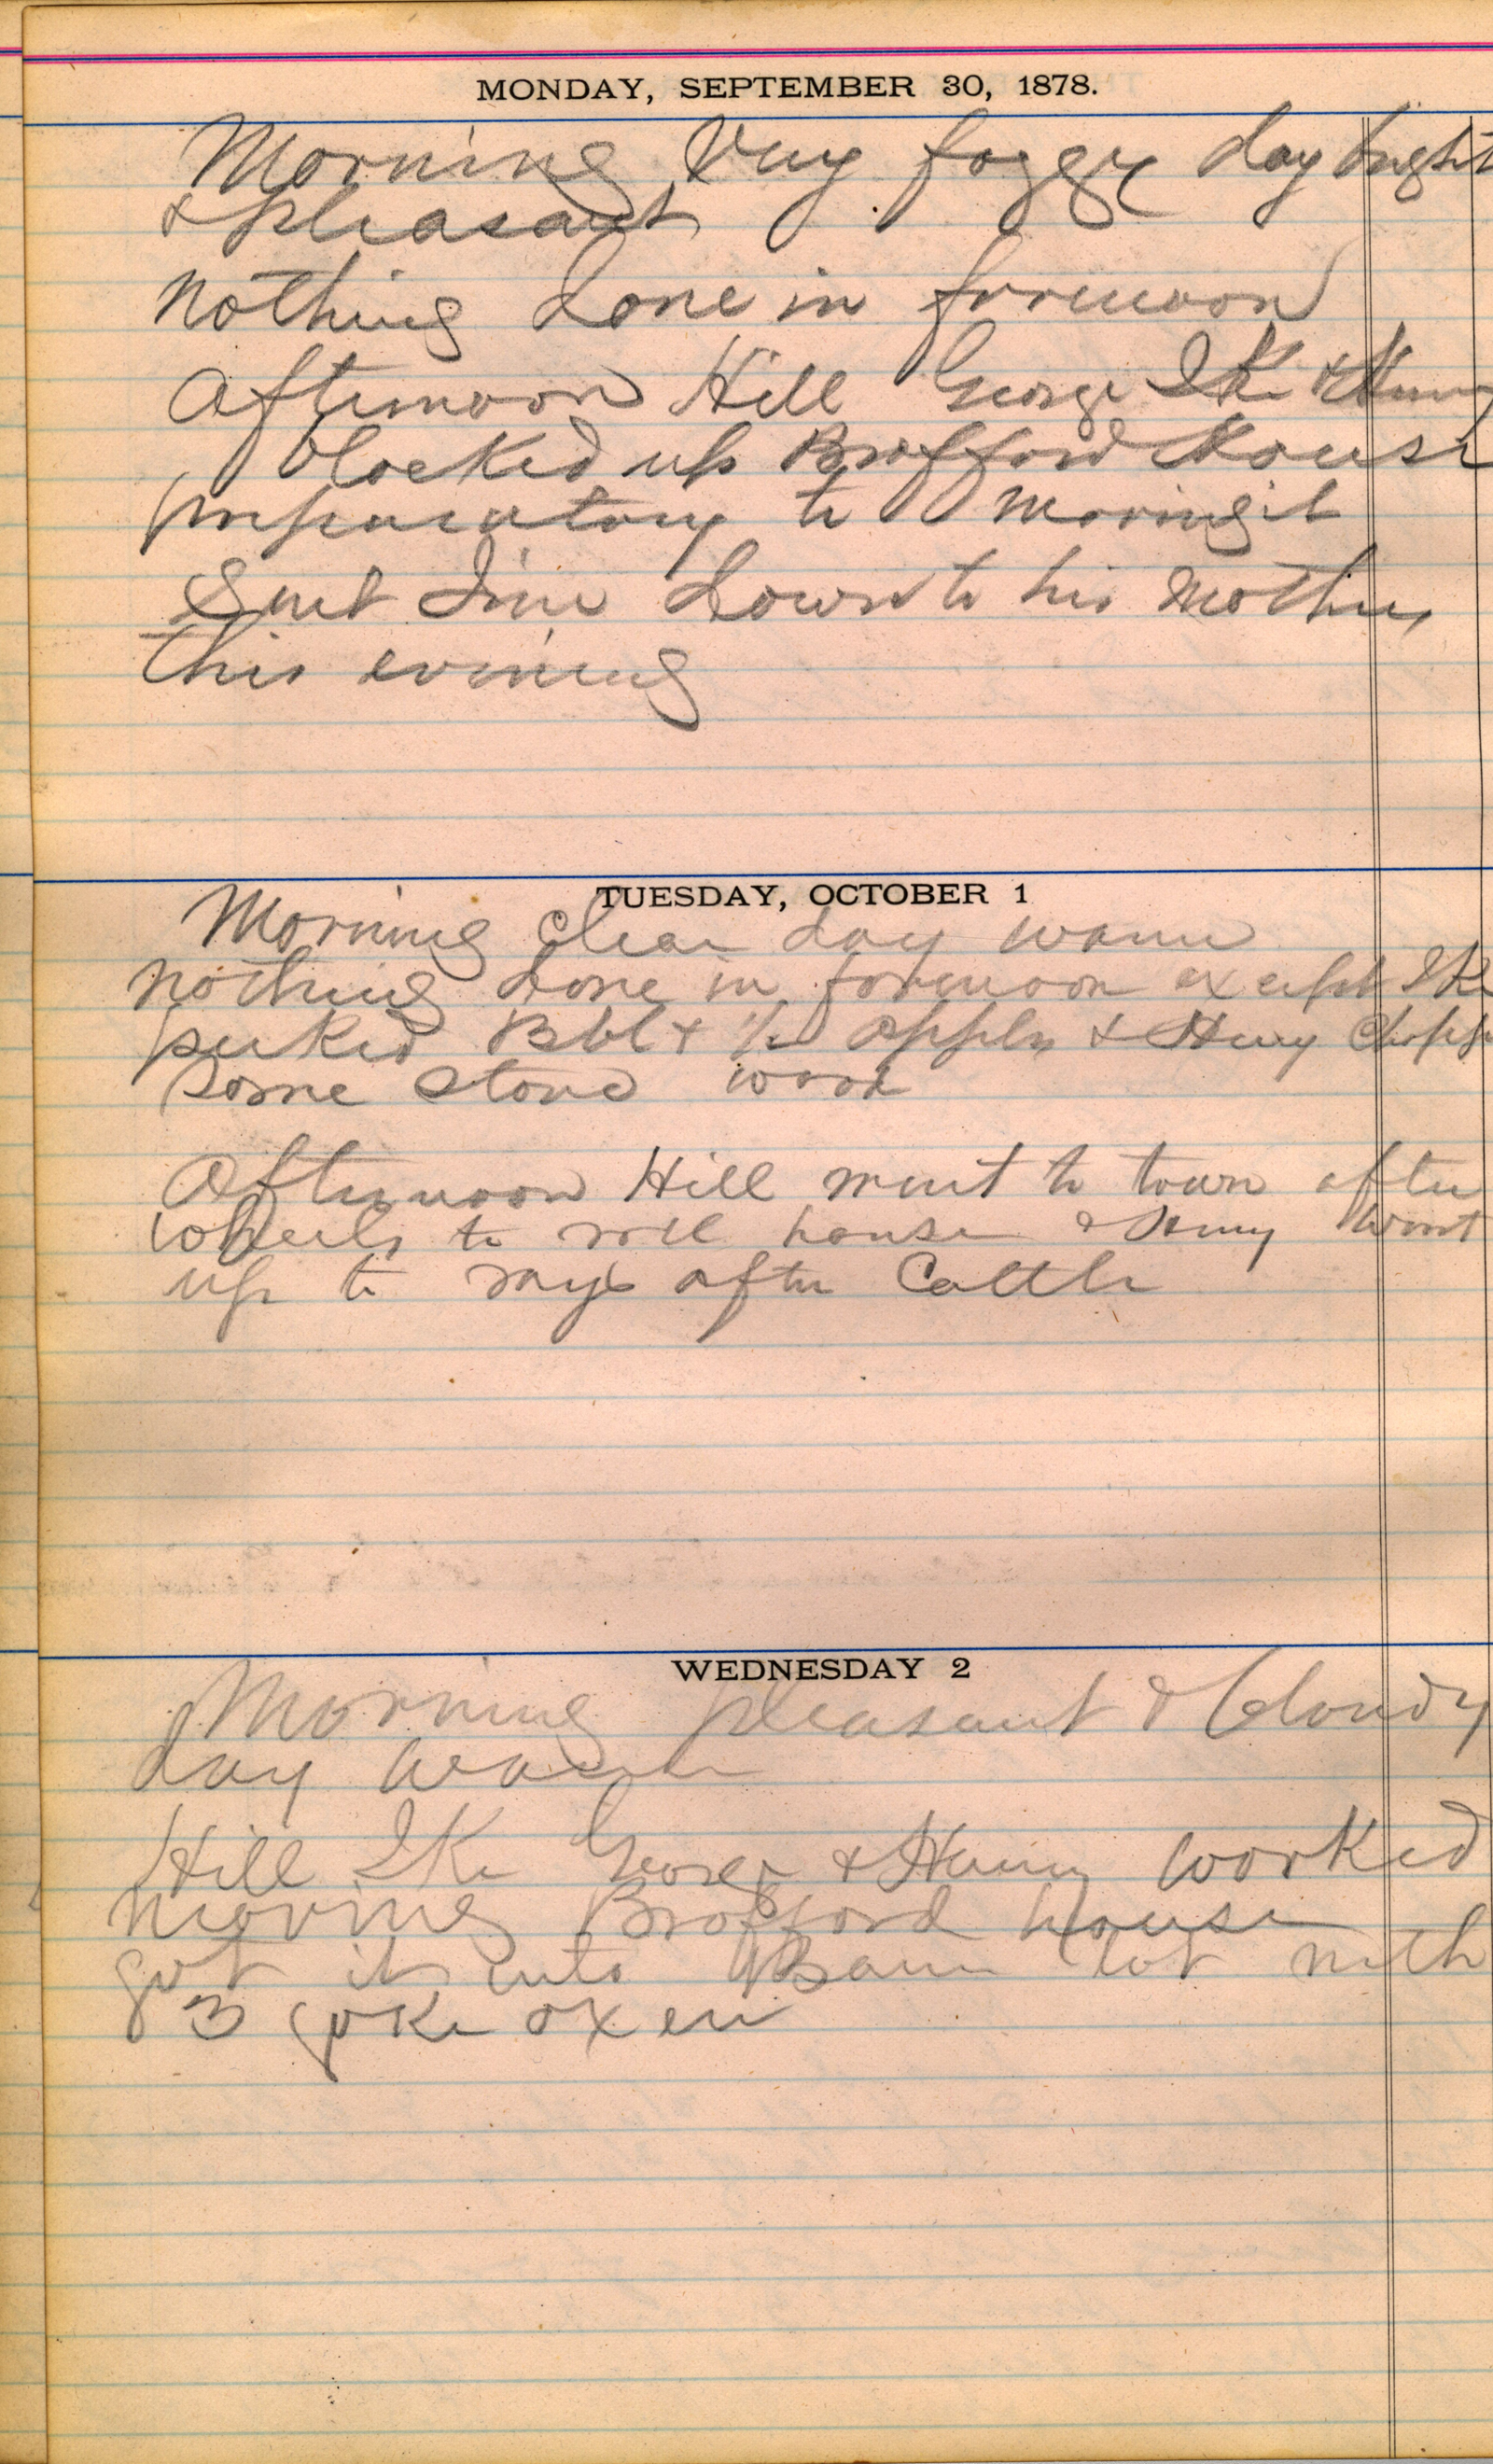 MONDAY, SEPTEMBER 30, 1878.
Morning Very foggy day bright
& pleasant
Nothing done in forenoon
Afternoon Hill George Ike & Henry
blocked up Brofford House
preparatory to moving it
Sent Jim down to his mothers
this evening
TUESDAY, OCTOBER 1
Morning clear day warm
Nothing done in forenoon except Ike
picked Bbl & ½ apples & Henry Chopp
some stove wood
Afternoon Hill went to town after
wheels to roll house & Henry went
up to after Cattle
WEDNESDAY 2
Morning pleasant & Cloudy
day warm
Hill Ike George & Henry worked
moving Brofford house
got it into Barn lot with
3 yoke oxen